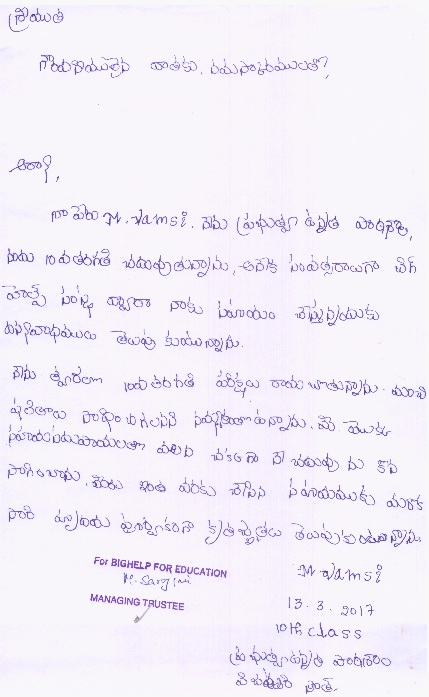 శ్రీయుత
గౌరవనీయులైన దాతకు, నమస్కారములతో,
ఆర్యా,
నా పేరు M. Vamsi. నేను ప్రభుత్వ ఉన్నత పాఠశాల,
నందు 10వతరగతి చదువుతున్నాను, అనేక సంవత్సరాలుగా బిగ్
హెల్ప్ సంస్థ ద్వారా నాకు సహాయం చేస్తున్నందుకు
ధన్యవాధములు తెలుపు కుంటున్నాను.
నేను త్వరలో 10వతరగతి పరీక్షలు రాయబోతున్నాను. మంచి
ఫలితాలు సాధించగలనని నమ్ముతూఉన్నాను. మీ యొక్క
సహాయసహకారాలతో చక్కగా నా చదువు ను కొన
సాగించాను. మీరు ఇంత వరకు చేసిన సహాయముకు మరొక
సారి హృదయ పూర్వకంగా కృతజ్ఞతలు తెలుపుకుంటున్నాను.
For BIGHELP FOR EDUCATION
MANAGING TRUSTEE
M Vamsi
13.3.2017
10th class
ప్రభుత్వఉన్నత పాఠశాల